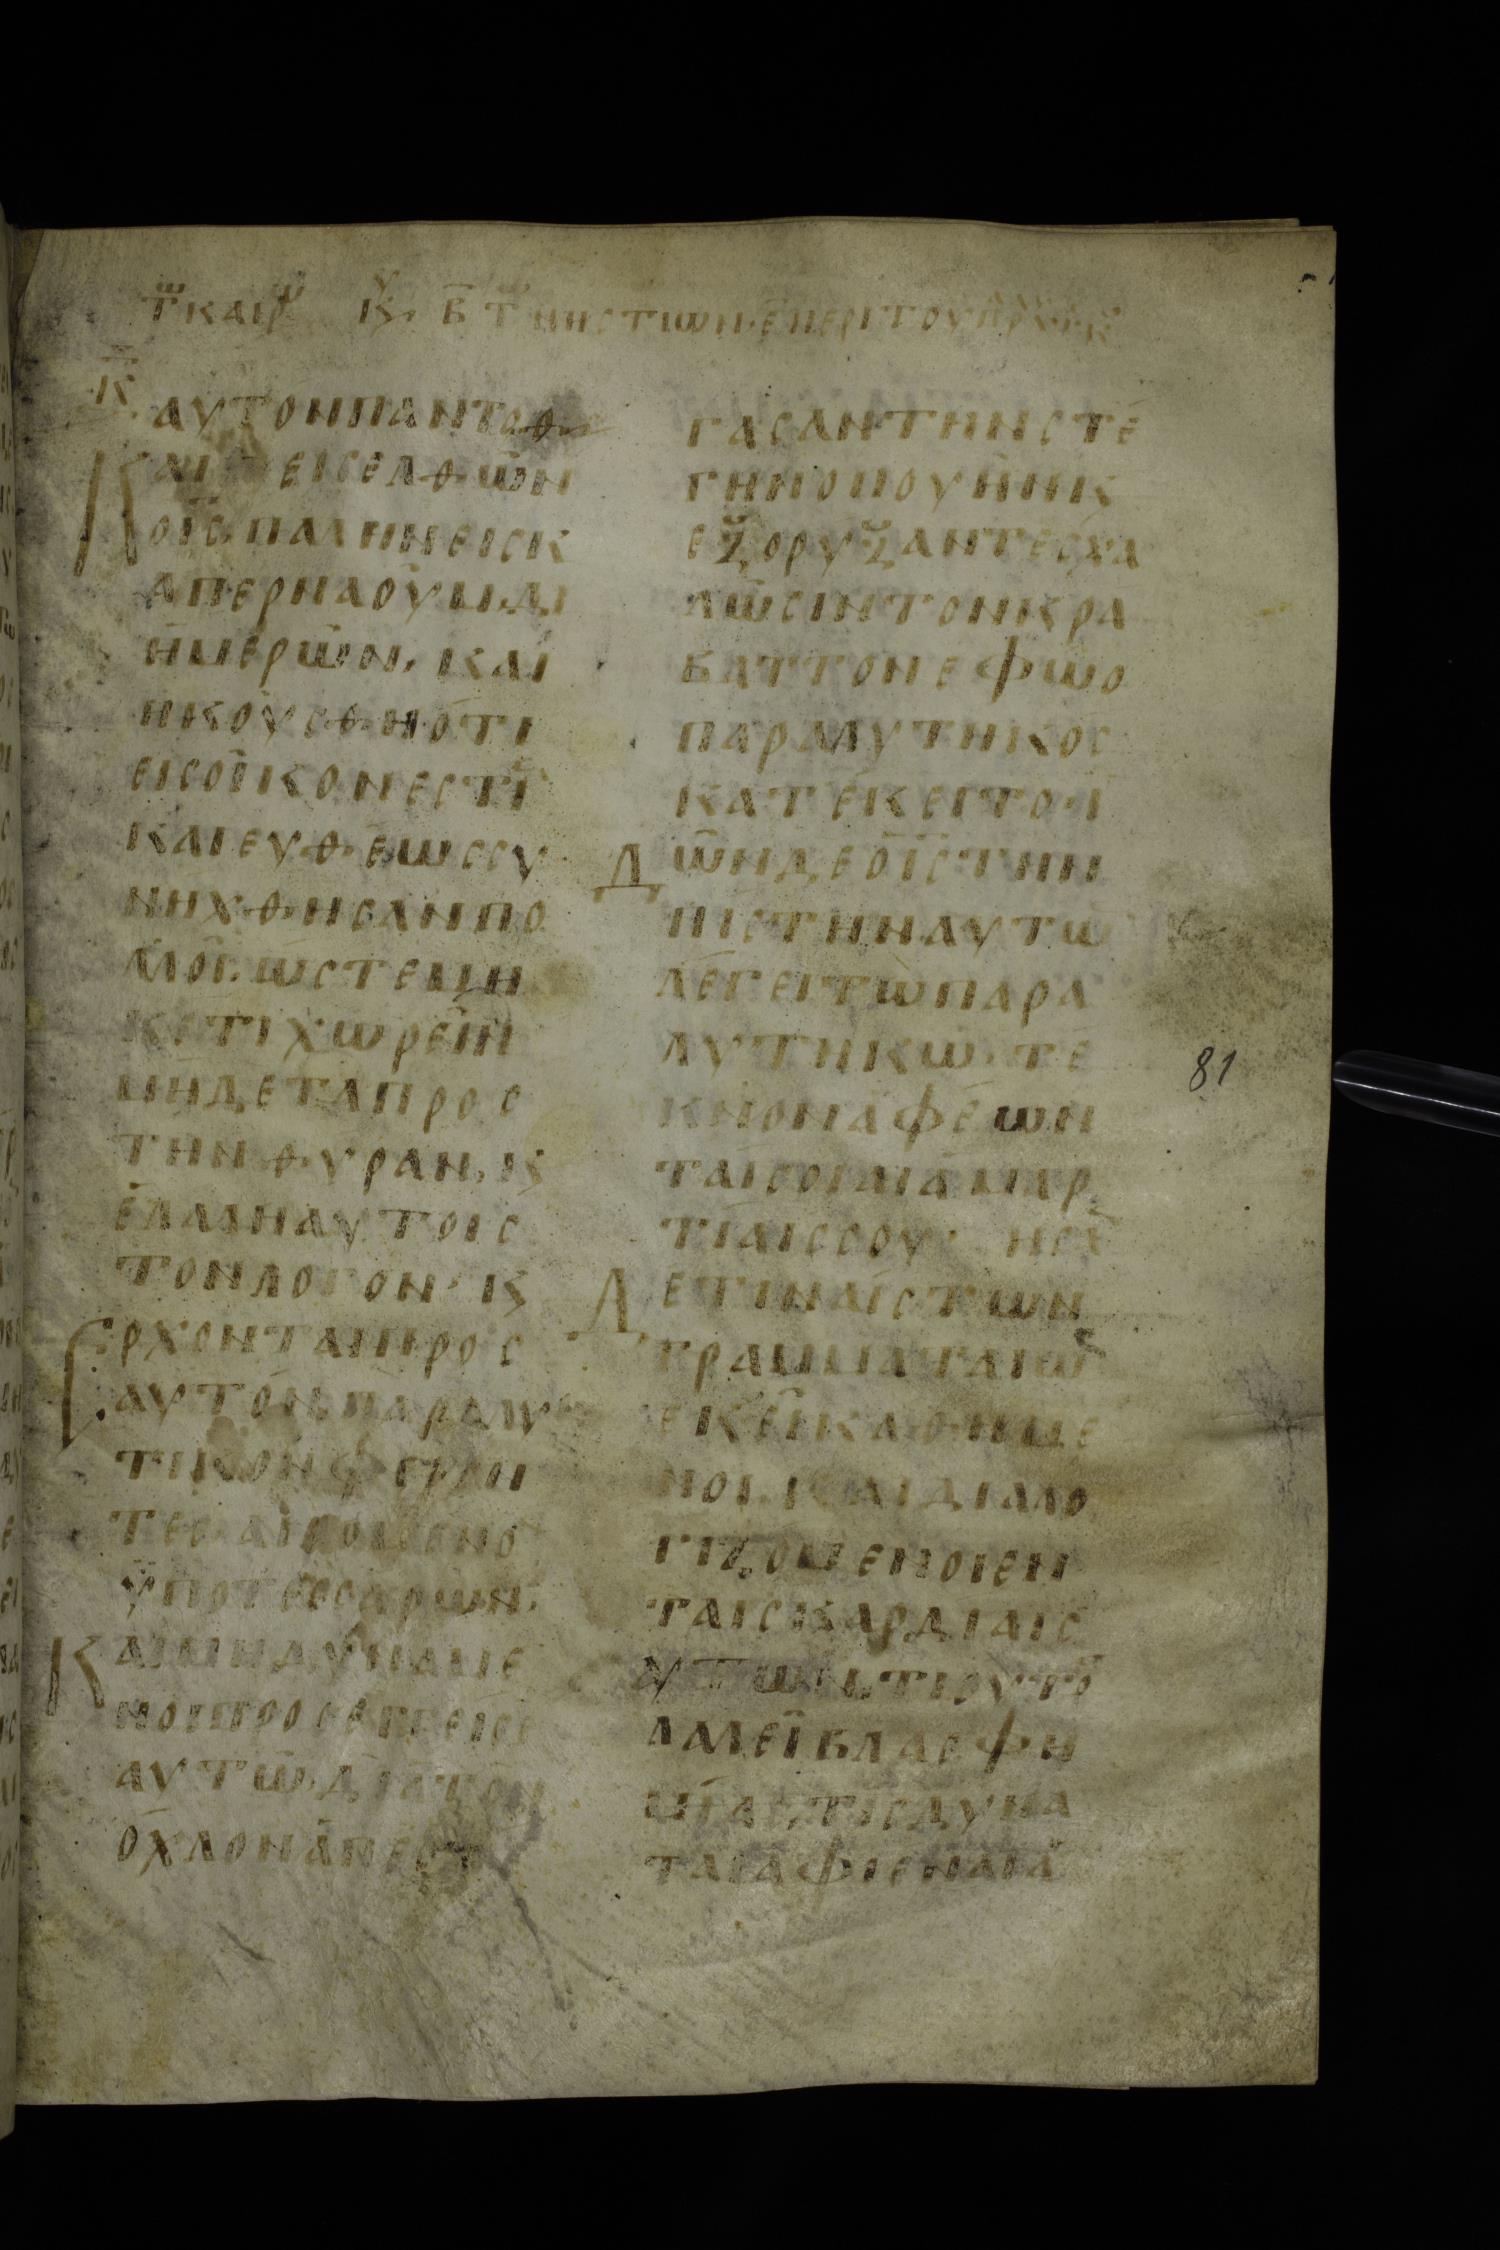 Κ
ΑΥΤΟΝΠΑΝΤΟΘΕ
ΚΑΙ ΕΙΣΕΛΘΩΝ
ΟΙΣ. ΠΑΛΙΝΕΙΣΚ
ΑΠΕΡΝΑΟΥΜ. ΔΙ
ΗΜΕΡΩΝ, ΚΑΙ
ΗΚΟΥΣΘΗΟΤΙ
ΕΙΣΟΙΚΟΝΕΣΤΙ
ΚΑΙΕΥΘΕΩΣΣΥ
ΝΗΧΘΗΣΑΝΠΟ
ΛΛΟΙ. ΩΣΤΕΜΗ
ΚΕΤΙΧΩΡΕΙΝ
ΜΗΔΕΤΑΠΡΟΣ
ΤΗΝΘΥΡΑΝ, Κ
ΕΛΑΛΗΑΥΤΟΙΣ
ΤΟΝΛΟΓΟΝ· Κ
ΕΡΧΟΝΤΑΙΠΡΟΣ
ΑΥΤΟΝ. ΠΑΡΑΛΥ
ΤΙΚΟΝΦΕΡΟΝ
ΤΕΣ. ΑΙΡΟΜΕΝΟ
ΫΠΟΤΕΣΣΑΡΩΝ·
ΚΑΙΜΗΔΥΝΑΜΕ
ΝΟΙΠΡΟΣΕΓΓΕΙΣΕ
ΑΥΤΩ. ΔΙΑΤΟΝ
ΟΧΛΟΝΑΠΕΣΤ
ΓΑΣΑΝΤΗΝΣΤΕ
ΓΗΝΟΠΟΥΗΝΚ
ΕΞΟΡΥΞΑΝΤΕΣΧΑ
ΛΩΣΙΝΤΟΝΚΡΑ
ΒΑΤΤΟΝΕΦΩΟ
ΠΑΡΑΛΥΤΗΚΟΣ
ΚΑΤΕΚΕΙΤΟ· Ι
ΔΩΝΔΕΟΙΣΤΗΝ
ΠΙΣΤΗΝΑΥΤΩ
ΛΕΓΕΙΤΩΠΑΡΑ
ΛΥΤΗΚΩ· ΤΕ
ΚΝΟΝΑΦΕΩΝ
ΤΑΙΣΟΙΑΙΑΜΑΡ
ΤΙΑΙΣΣΟΥ· ΗΣΑ
ΔΕΤΙΝΑΙΣΤΩΝ
ΓΡΑΜΜΑΤΑΙΩ
ΕΚΕΙΚΑΘΗΜΕ
ΝΟΙ. ΚΑΙΔΙΑΛΟ
ΓΙΖΟΜΕΝΟΙΕΝ
ΤΑΙΣΚΑΡΔΙΑΙΣ
ΑΥΤΩΝ. ΤΙΟΥΤΟ
ΛΑΛΕΙΒΛΑΣΦΗ
ΜΙΑΣ, ΤΙΣΔΥΝΑ
ΤΑΙΑΦΙΕΝΑΙΑ
81